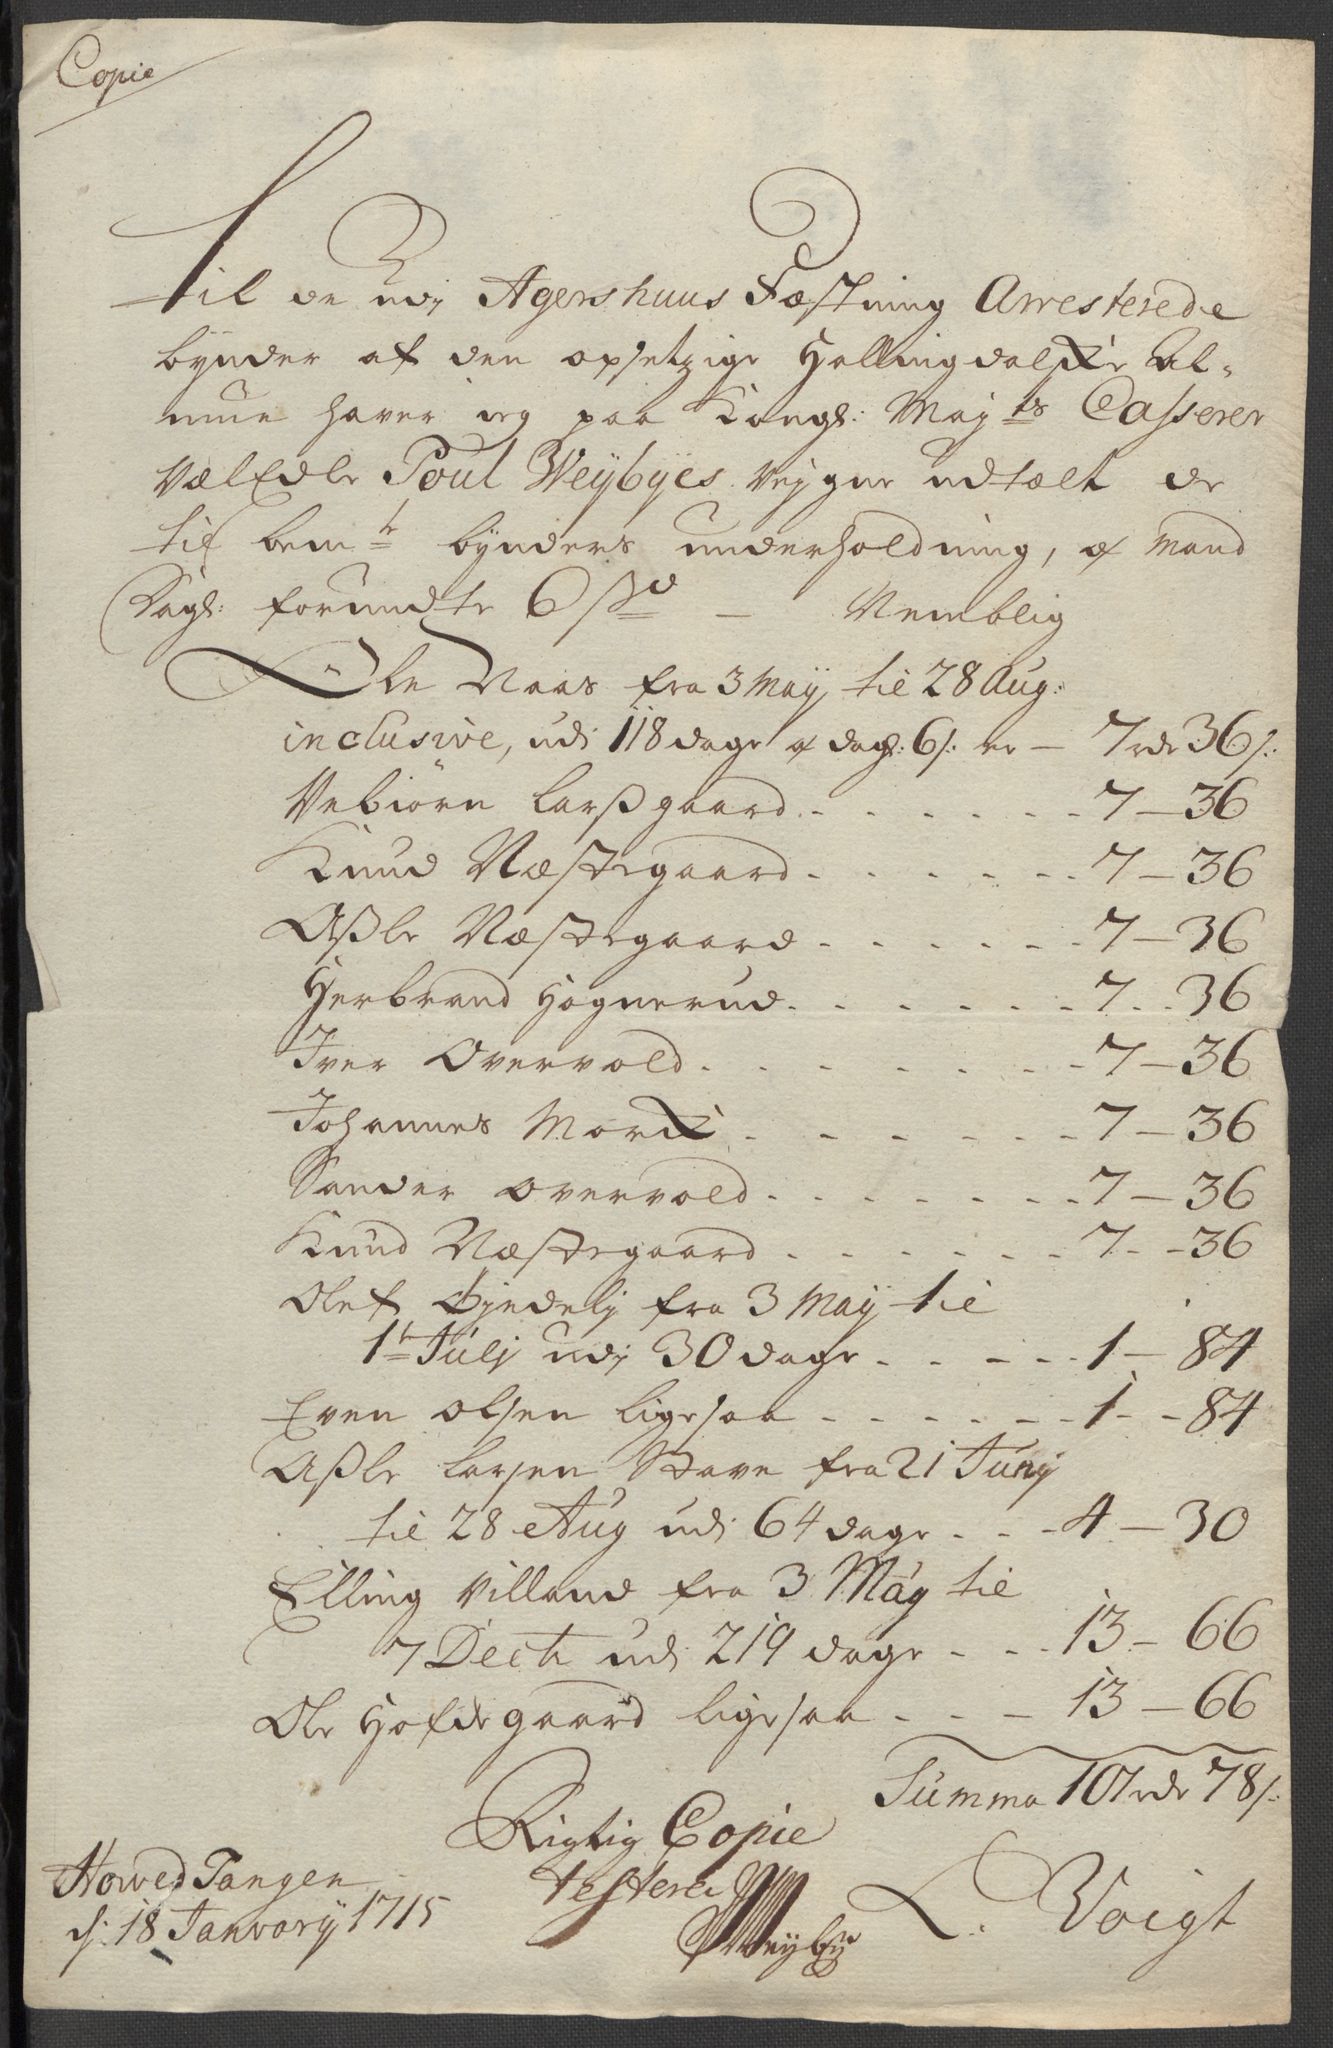 Copie
Til de udj Agershuus Fæstning Arresterede
bynder af den opsetzige Hallingdalske Al-
mue haver ieg paa Kongl: Mayts Casserer
VælEdle Poul Weybyes Vejgne udtælt de
til bemte bynders underholdning, a mand
Dagl: forundte 6 sd — Nemblig
Ole Naas fra 3 Maij til 28 Aug:
inclusive, udi 118 dage a dagl: 6 s: er — 7 rdr 36 s:
Vebiörn Larsgaard . . . . . . 7 — 36
Knud Næstegaard . . . . . . 7 — 36
Aßle Næstegaard . . . . . . 7 — 36
Herbrand Hognerud . . . . . . 7 . . 36
Iver Overvold . . . . . . . 7 — 36
Johannes Mork . . . . . . 7 — 36
Sander Overvold . . . . . . . 7 — 36
Knud Næstegaard . . . . . . 7 - - 36
Olef fra 3 Maij til
1te Julj udj 30 dage . . . . . 1 — 84
Even Olsen ligesaa . . . . . . 1 - - 84
Aßle Larsen Stave fra 21 Junij
til 28 Aug udi 64 dage . . . 4 — 30
Elling Villand fra 3 May til
7 Decb udi 219 dage . . . 13 — 66
Ole Hofdegaard ligesaa . . . 13 — 66
Summa 107 rdr 78 s:
Rigtig Copie
Howed Tangen testerer
d: 18 Janvarij 1715 L: Voigt
PWeybye